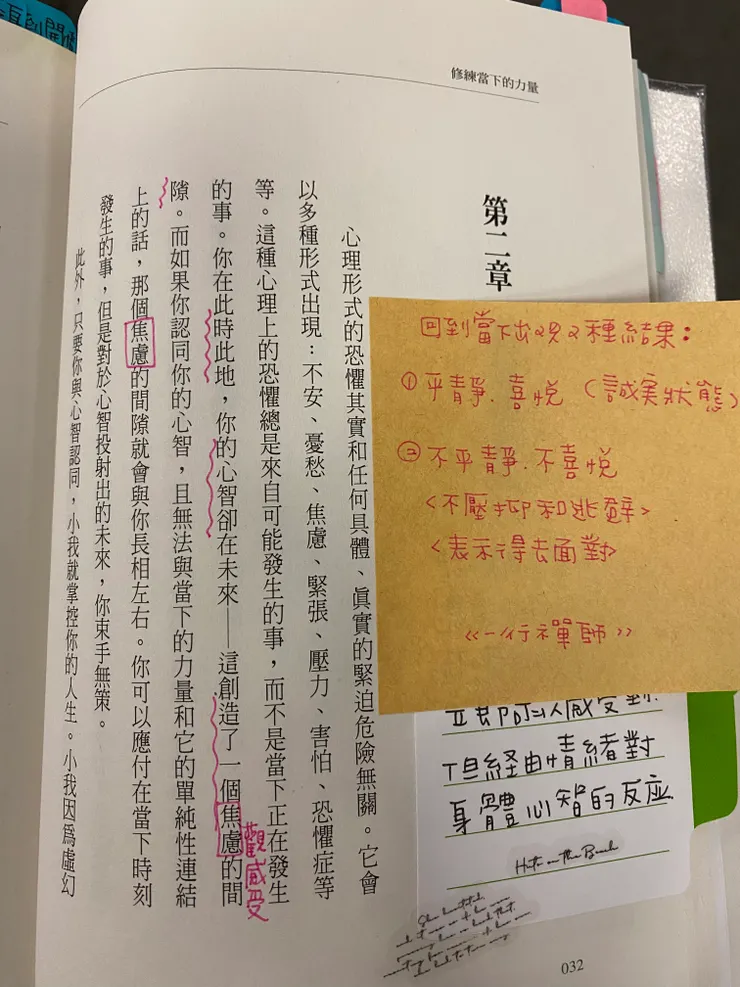 修練當下的力量
第二章
心理形式的恐懼其實和任何具體、眞實的緊迫危險無關。它會
以多種形式出現：不安、憂愁、焦慮、緊張、壓力、害怕、恐懼症等
等。這種心理上的恐懼總是來自可能發生的事，而不是當下正在發生
的事。你在此時此地，你的心智卻在未來——這創造了一個焦慮的間
隙。而如果你認同你的心智，且無法與當下的力量和它的單純性連結
上的話，那個焦慮的間隙就會與你長相左右。你可以應付在當下時刻
發生的事，但是對於心智投射出的未來，你束手無策。
此外，只要你與心智認同，小我就掌控你的人生。小我因爲虛幻
觀感受
回到當下出現2種結果：
①平靜．喜悅（誠実狀態）
②不平靜．不喜悅
<不壓抑和逃避>
<表示得去面對>
《一行禪師》
但経由情緒對
身體心智的反应
032